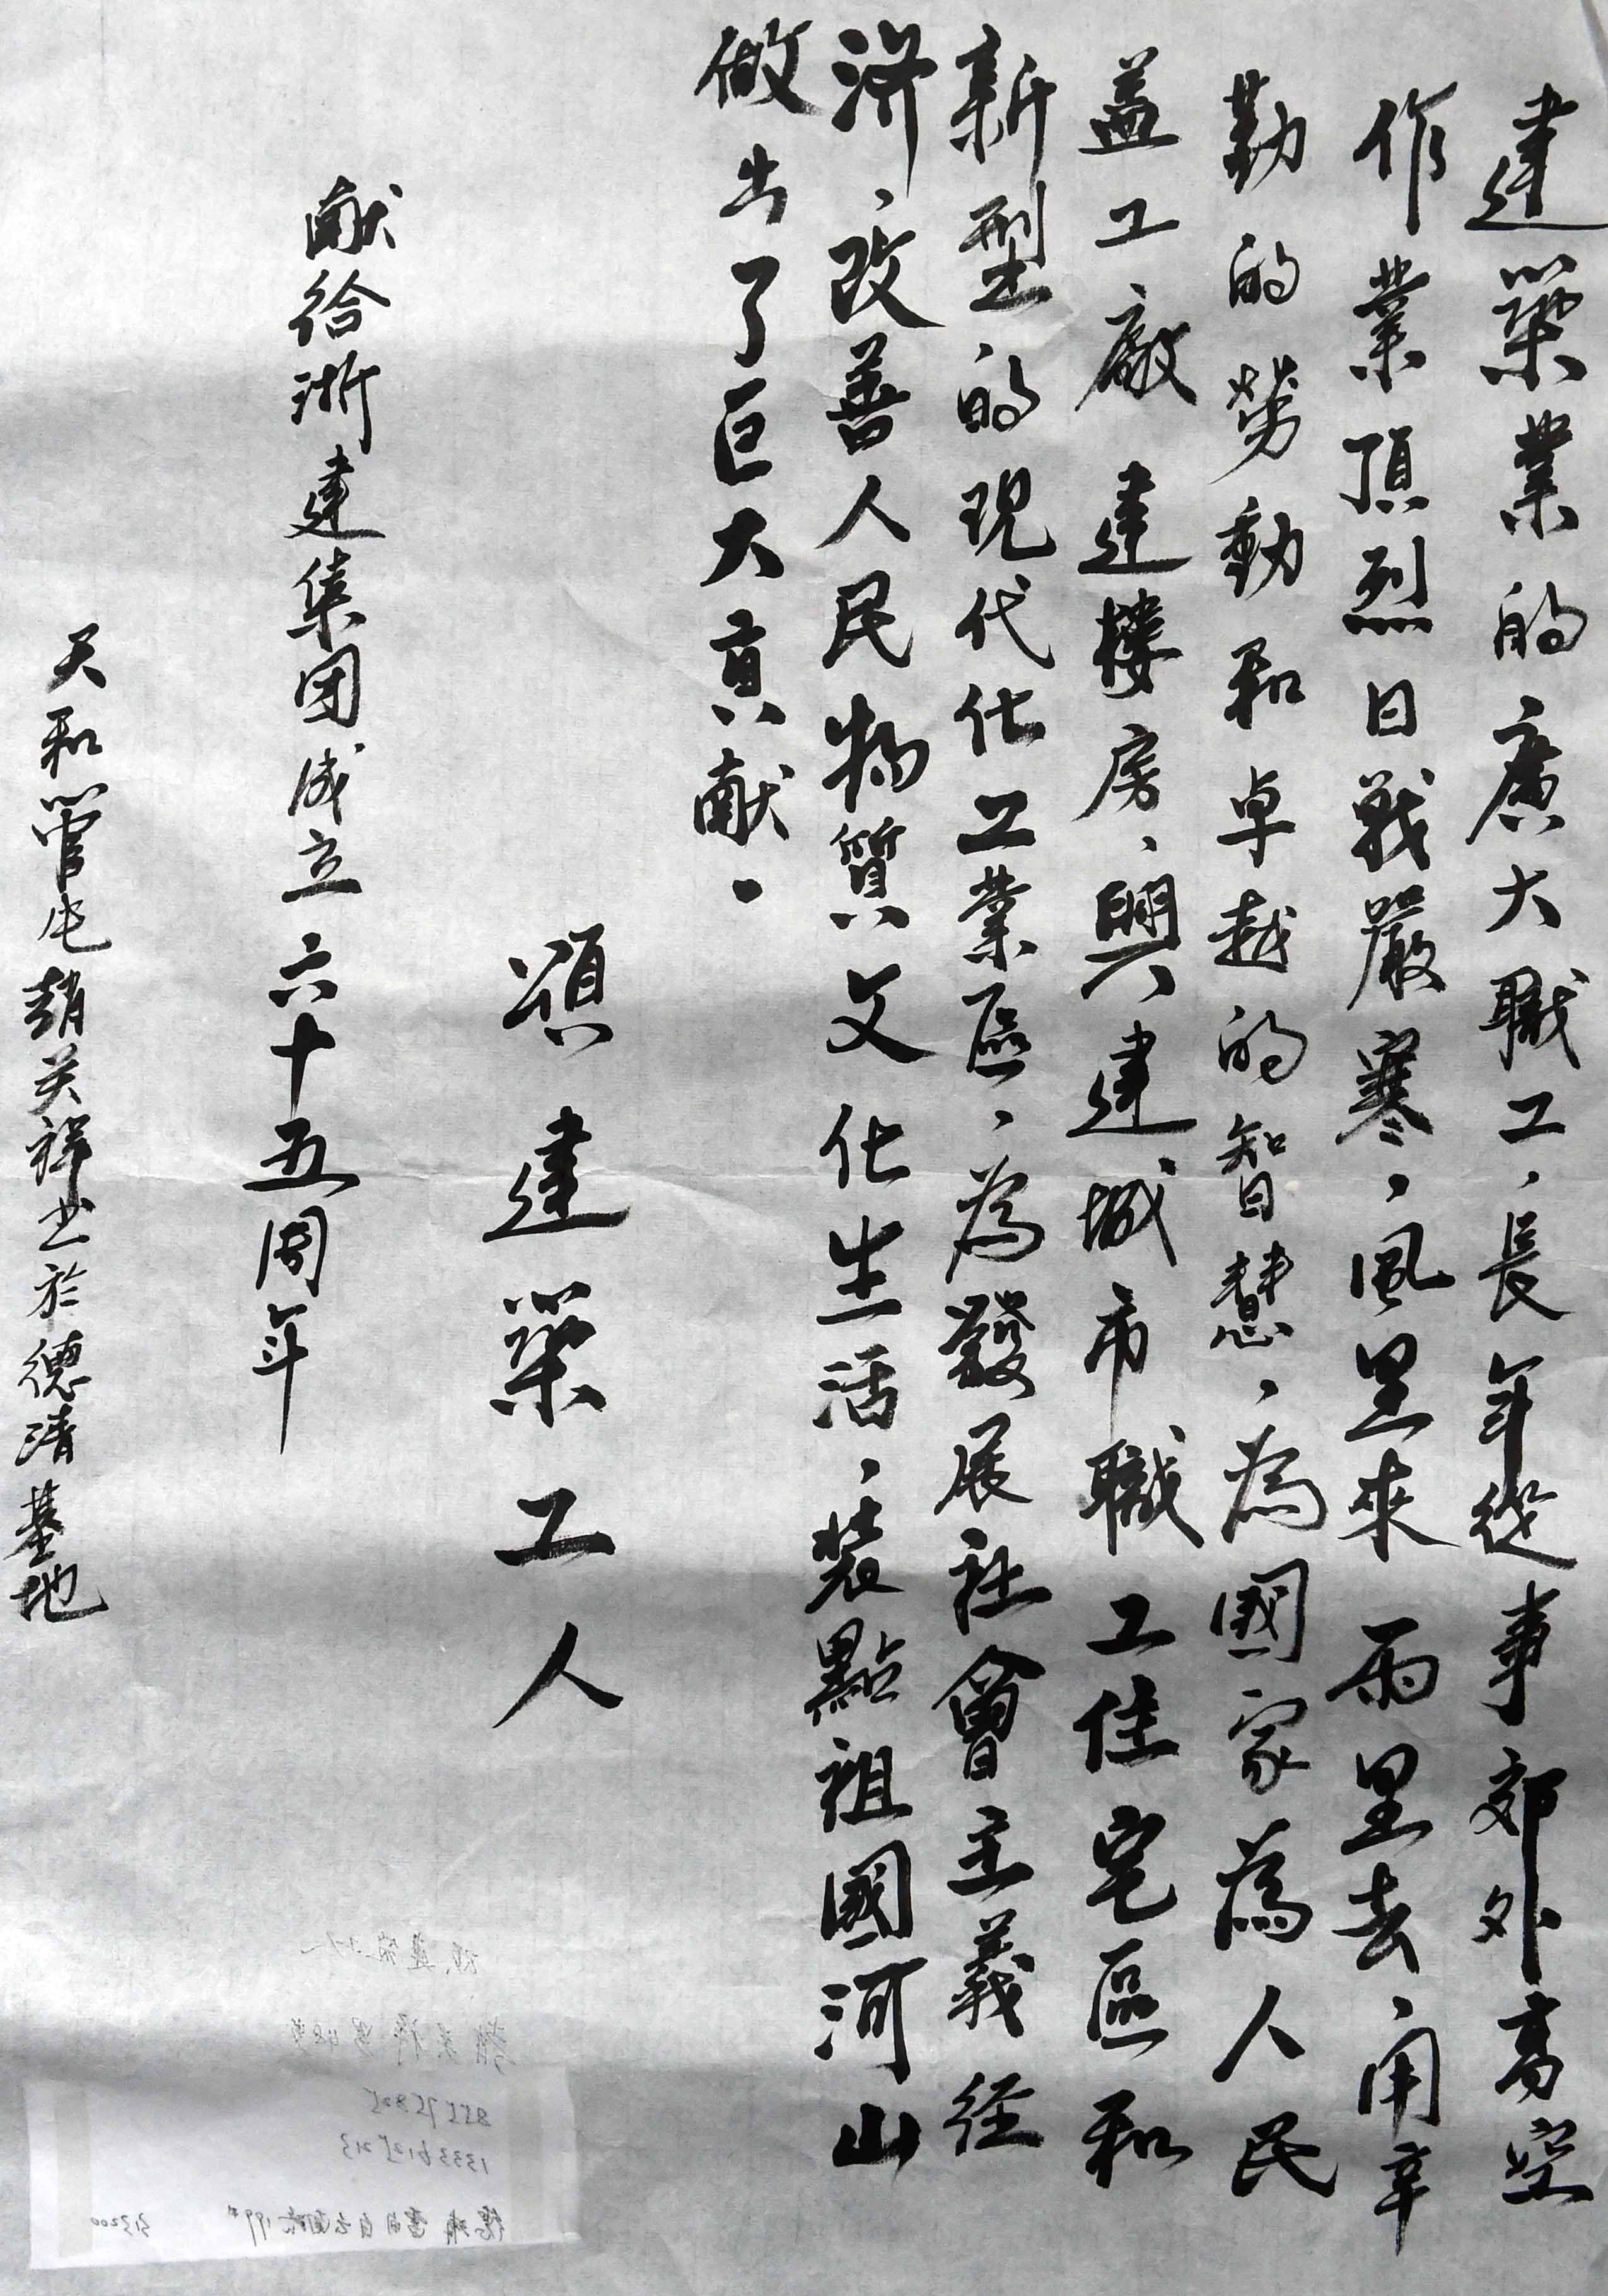 建築業的廣大職工、長年從事郊外高空
作業頂烈日戰嚴寒、風里來雨里去、用辛
勤的勞動和卓越的智慧、為國家為人民
蓋工廠建樓房、興建城市職工住宅區和
新型的現代化工業區、為發展社會主義径
济、改善人民物質文化生活、装點祖國河山
做出了巨大貢献.
頌建築工人
献给浙建集团成立六十五周年
天和管屯趙关祥书於德清基地